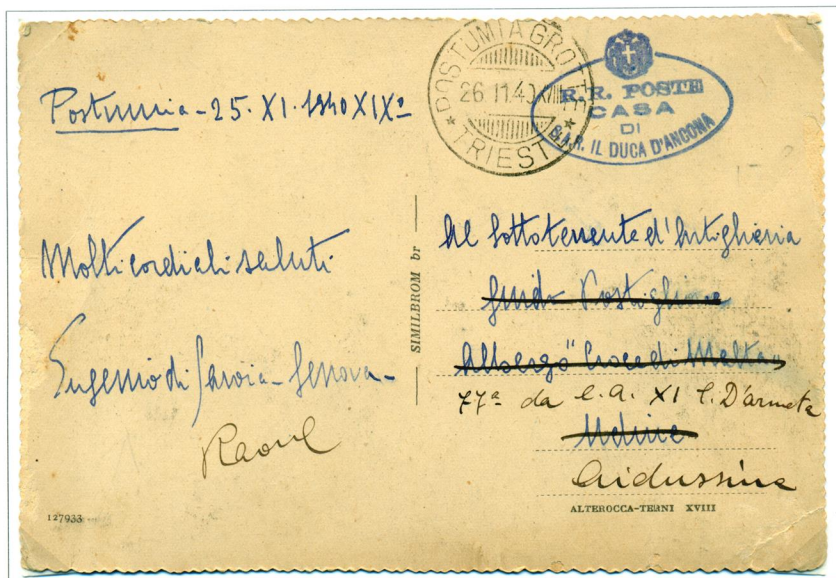 Postumia - 25. XI. 1940 XIXº
POSTUMIA GROTTE
26 11 40 XIX
TRIESTE
R.R. POSTE
CASA
DI
S.A.R. IL DUCA D'ANCONA
Molti cordiali saluti
Eugenio di Savoia - Genova -
Raoul
SIMILBROM br
Al Sottotenente d'Artiglieria
Guido Postiglione
Albergo "Croce di Malta"
77ª da C.A. XI C. D'armata
Udine
Aidussina
127933
ALTEROCCA-TERNI XVIII